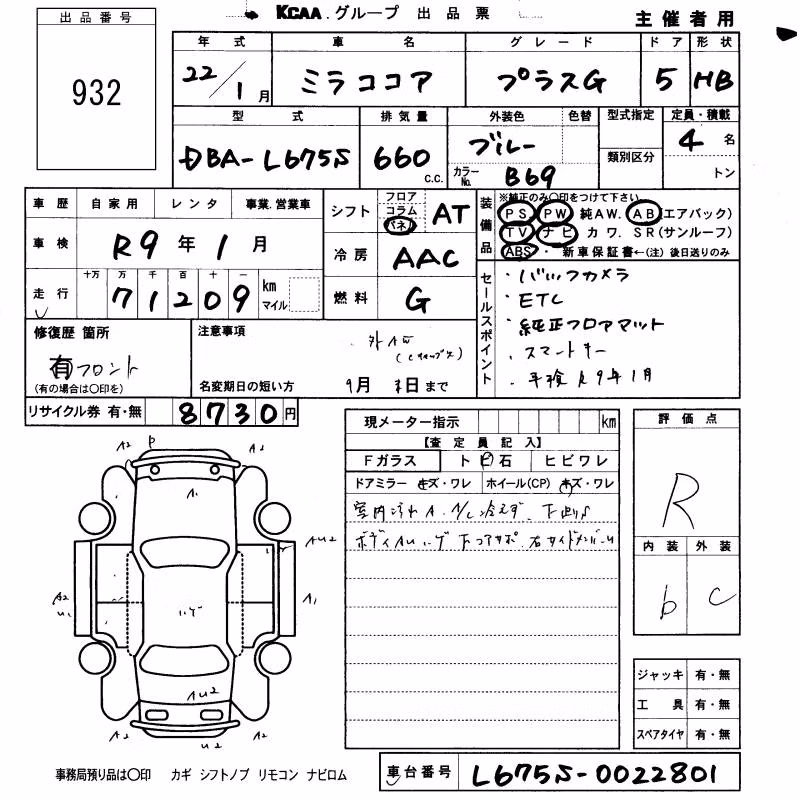 KCAA.グループ 出品票
主催者用
出品番号
932
年式 車名 グレード ドア 形状
22/1月 ミラココア プラスG 5 HB
型式 排気量 外装色 色替 型式指定 定員・積載
DBA-L675S 660 c.c. ブルー 4名
カラーNo. B69 類別区分 トン
車歴 自家用 レンタ 事業.営業車
車検 R9年1月
走行 十万 万 千 百 十 一
71209 km マイル
シフト フロア コラム パネ AT
冷房 AAC
燃料 G
装備品 ※純正のみ〇印をつけて下さい
PS PW 純AW. AB(エアバック)
TV ナビ カワ. SR(サンルーフ)
ABS・ 新車保証書←(注)後日送りのみ
セールスポイント
・バックカメラ
・ETC
・純正フロアマット
・スマートキー
・車検R9年1月
修復歴 箇所
有フロント
(有の場合は〇印を)
注意事項
外AW
名変期日の短い方 9月 末日まで
リサイクル券 有・無 8730円
現メーター指示 km
【査定員記入】
Fガラス トビ石 ヒビワレ
ドアミラー キズ・ワレ ホイール(CP) キズ・ワレ
室内汚れA A/C冷えず 下回りS
ボディAUハゲ 下コアサポ 右サイドメンバーU
評価点
R
内装 外装
b c
A2 P A2
A1
AU2
A2 U1
A1
ハゲ
AU2
A2 U2 A2
ジャッキ 有・無
工具 有・無
スペアタイヤ 有・無
事務局預り品は〇印 カギ シフトノブ リモコン ナビロム
車台番号 L675S-0022801